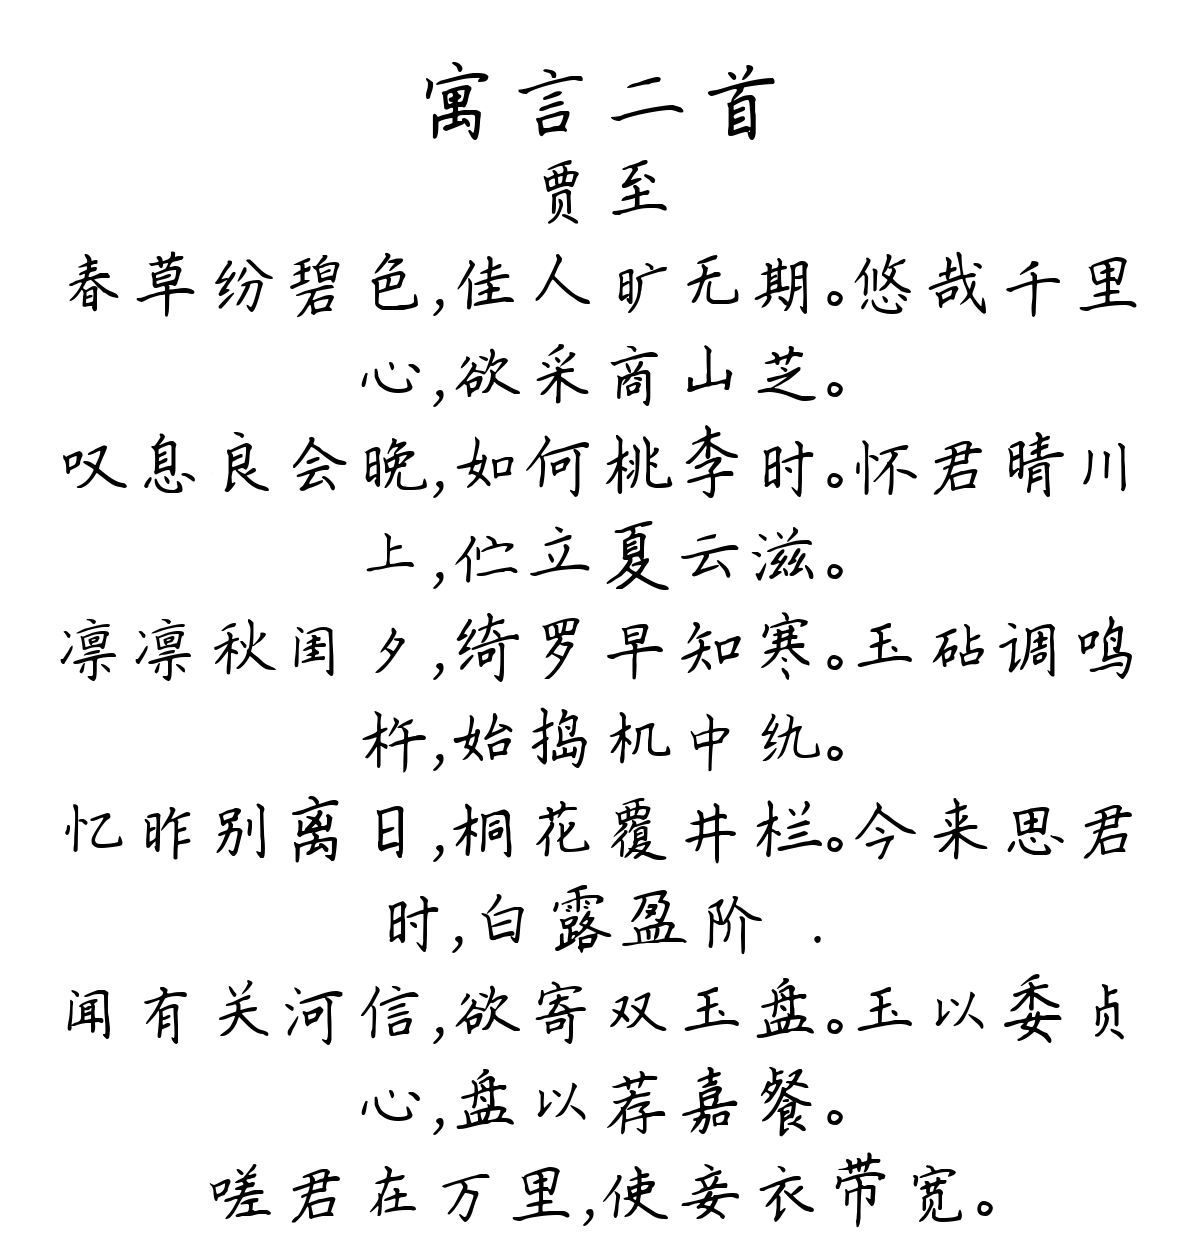 寓言二首
贾至
春草纷碧色,佳人旷无期。悠哉千里
心,欲采商山芝。
叹息良会晚,如何桃李时。怀君晴川
上,伫立夏云滋。
凛凛秋闺夕,绮罗早知寒。玉砧调鸣
杵,始捣机中纨。
忆昨别离日,桐花覆井栏。今来思君
时,白露盈阶 .
闻有关河信,欲寄双玉盘。玉以委贞
心,盘以荐嘉餐。
嗟君在万里,使妾衣带宽。